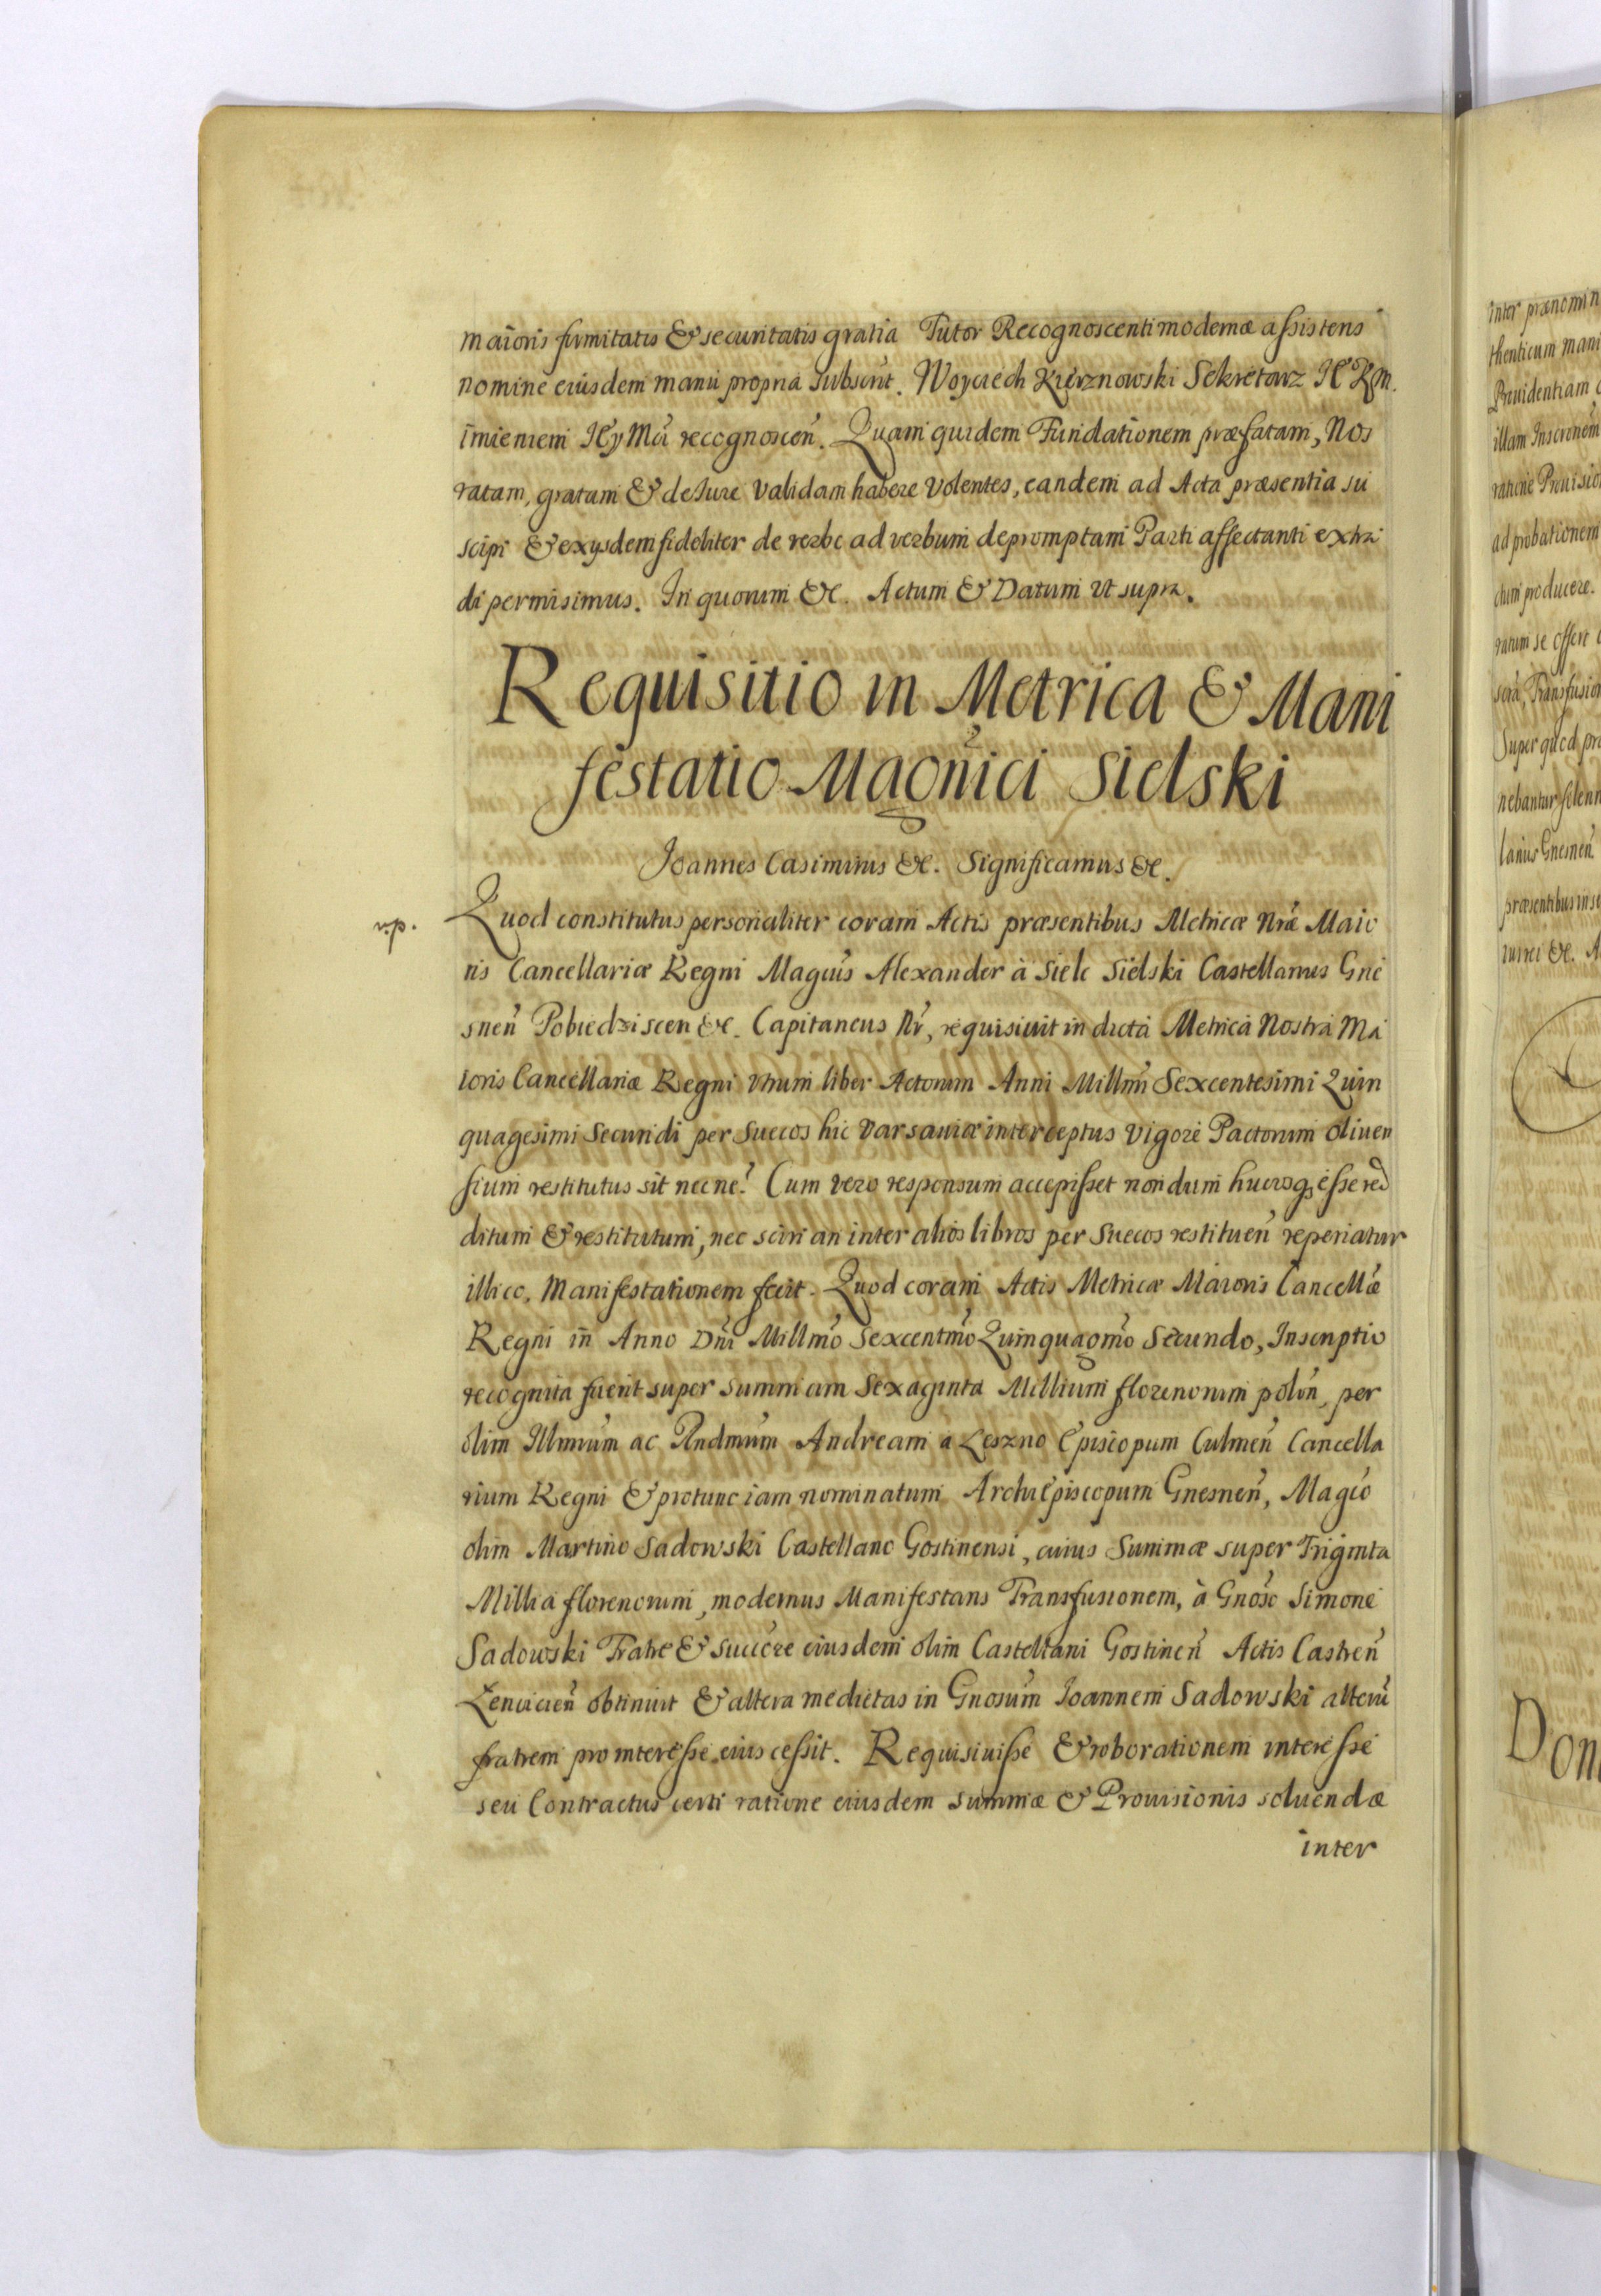 maioris firmitatis & securitatis gratia Tutor Recognoscenti modernæ assistens
nomine eiusdem manu propria subscrit. Woyciech Kierznowski Sekretarz JE Km.
imieniem JEy Mci recognoscen. Quam quidem Fundationem præfatam, Nos
ratam, gratam & de Jure validam habere volentes, eandem ad Acta præsentia su
scipi & exysdem fideliter de verbo ad verbum depromptam Parti affectanti extra
di permisimus. In quorum &c. Actum & Datum vt supra.
Requisitio in Metrica & Mani
festatio Magnici Sielski
Joannes Casimirus &c. Significamus &c.
v.p.
Quod constitutus personaliter coram Actis præsentibus Metricæ Nræ Maio
ris Cancellariæ Regni Magcus Alexander à Siele Sielski Castellanus Gne
snen Pobiedziscen &c. Capitaneus Nr, requisiuit in dicta Metrica Nostra Ma
ioris Cancellariæ Regni vtrum liber Actorum Anni Millmi Sexcentesimi Quin
quagesimi Secundi per Suecos hic Varsaviæ interceptus vigore Pactorum Oliuen
sium restitutus sit necne? Cum vero responsum accepisset nondum hucusq; esse red
ditum & restitutum, nec sciri an inter alios libros per Suecos restituen reperiatur
illico, Manifestationem fecit. Quod coram Actis Metricæ Maioris Cancellæ
Regni in Anno Dni Millmo Sexcentmo Quinquagmo Secundo, Inscriptio
recognita fuerit super summam Sexaginta Millium florenorum polon, per
olim Illmum ac Rndmum Andream a Leszno Episcopum Culmen Cancella
rium Regni & protunc iam nominatum ArchiEpiscopum Gnesnen, Magco
olim Martino Sadowski Castellano Gostinensi, cuius Summæ super Triginta
Millia florenorum, modernus Manifestans Transfusionem, à Gnoso Simone
Sadowski Fratre & succore eiusdem olim Castellani Gostinen Actis Castren
Lencicien obtinuit & altera medietas in Gnosum Joannem Sadowski alterum
fratrem pro interesse eius cessit. Requisiuisse & roborationem interesse
seu Contractus certi ratione eiusdem summæ & Prouisionis soluendæ
inter
inter prænomin
thenticum mani
Prouidentiam
illam Inscronem
ratione Prouisio
ad probationem
ctum producere.
ratum se offert
Transfusion
Super quod pr
nebantur solenn
lanus Gnesnen
præsentibus
&c. A
Dom